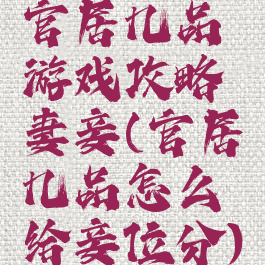 官居九品
游戏攻略
妻妾(官居
九品怎么
给妾位分)